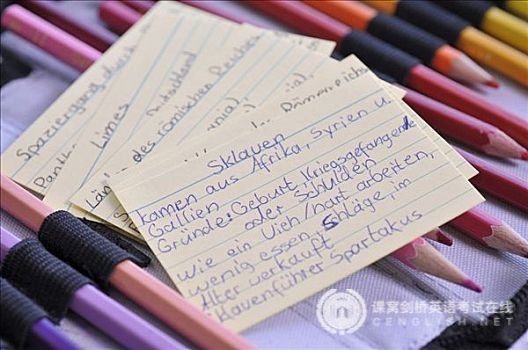 Spaziergang durch
Panth
Limes
Deutschland
des römischen Reiches
Römerreich
Sklaven
kamen aus Afrika, Syrien u.
Gallien
Gründe: Geburt, Kriegsgefangene
oder Schulden
wie ein Vieh/hart arbeiten,
wenig essen, Schläge, im
Alter verkauft
klavenführer Spartakus
课窝剑桥英语考试在线
CENGLISH.NET